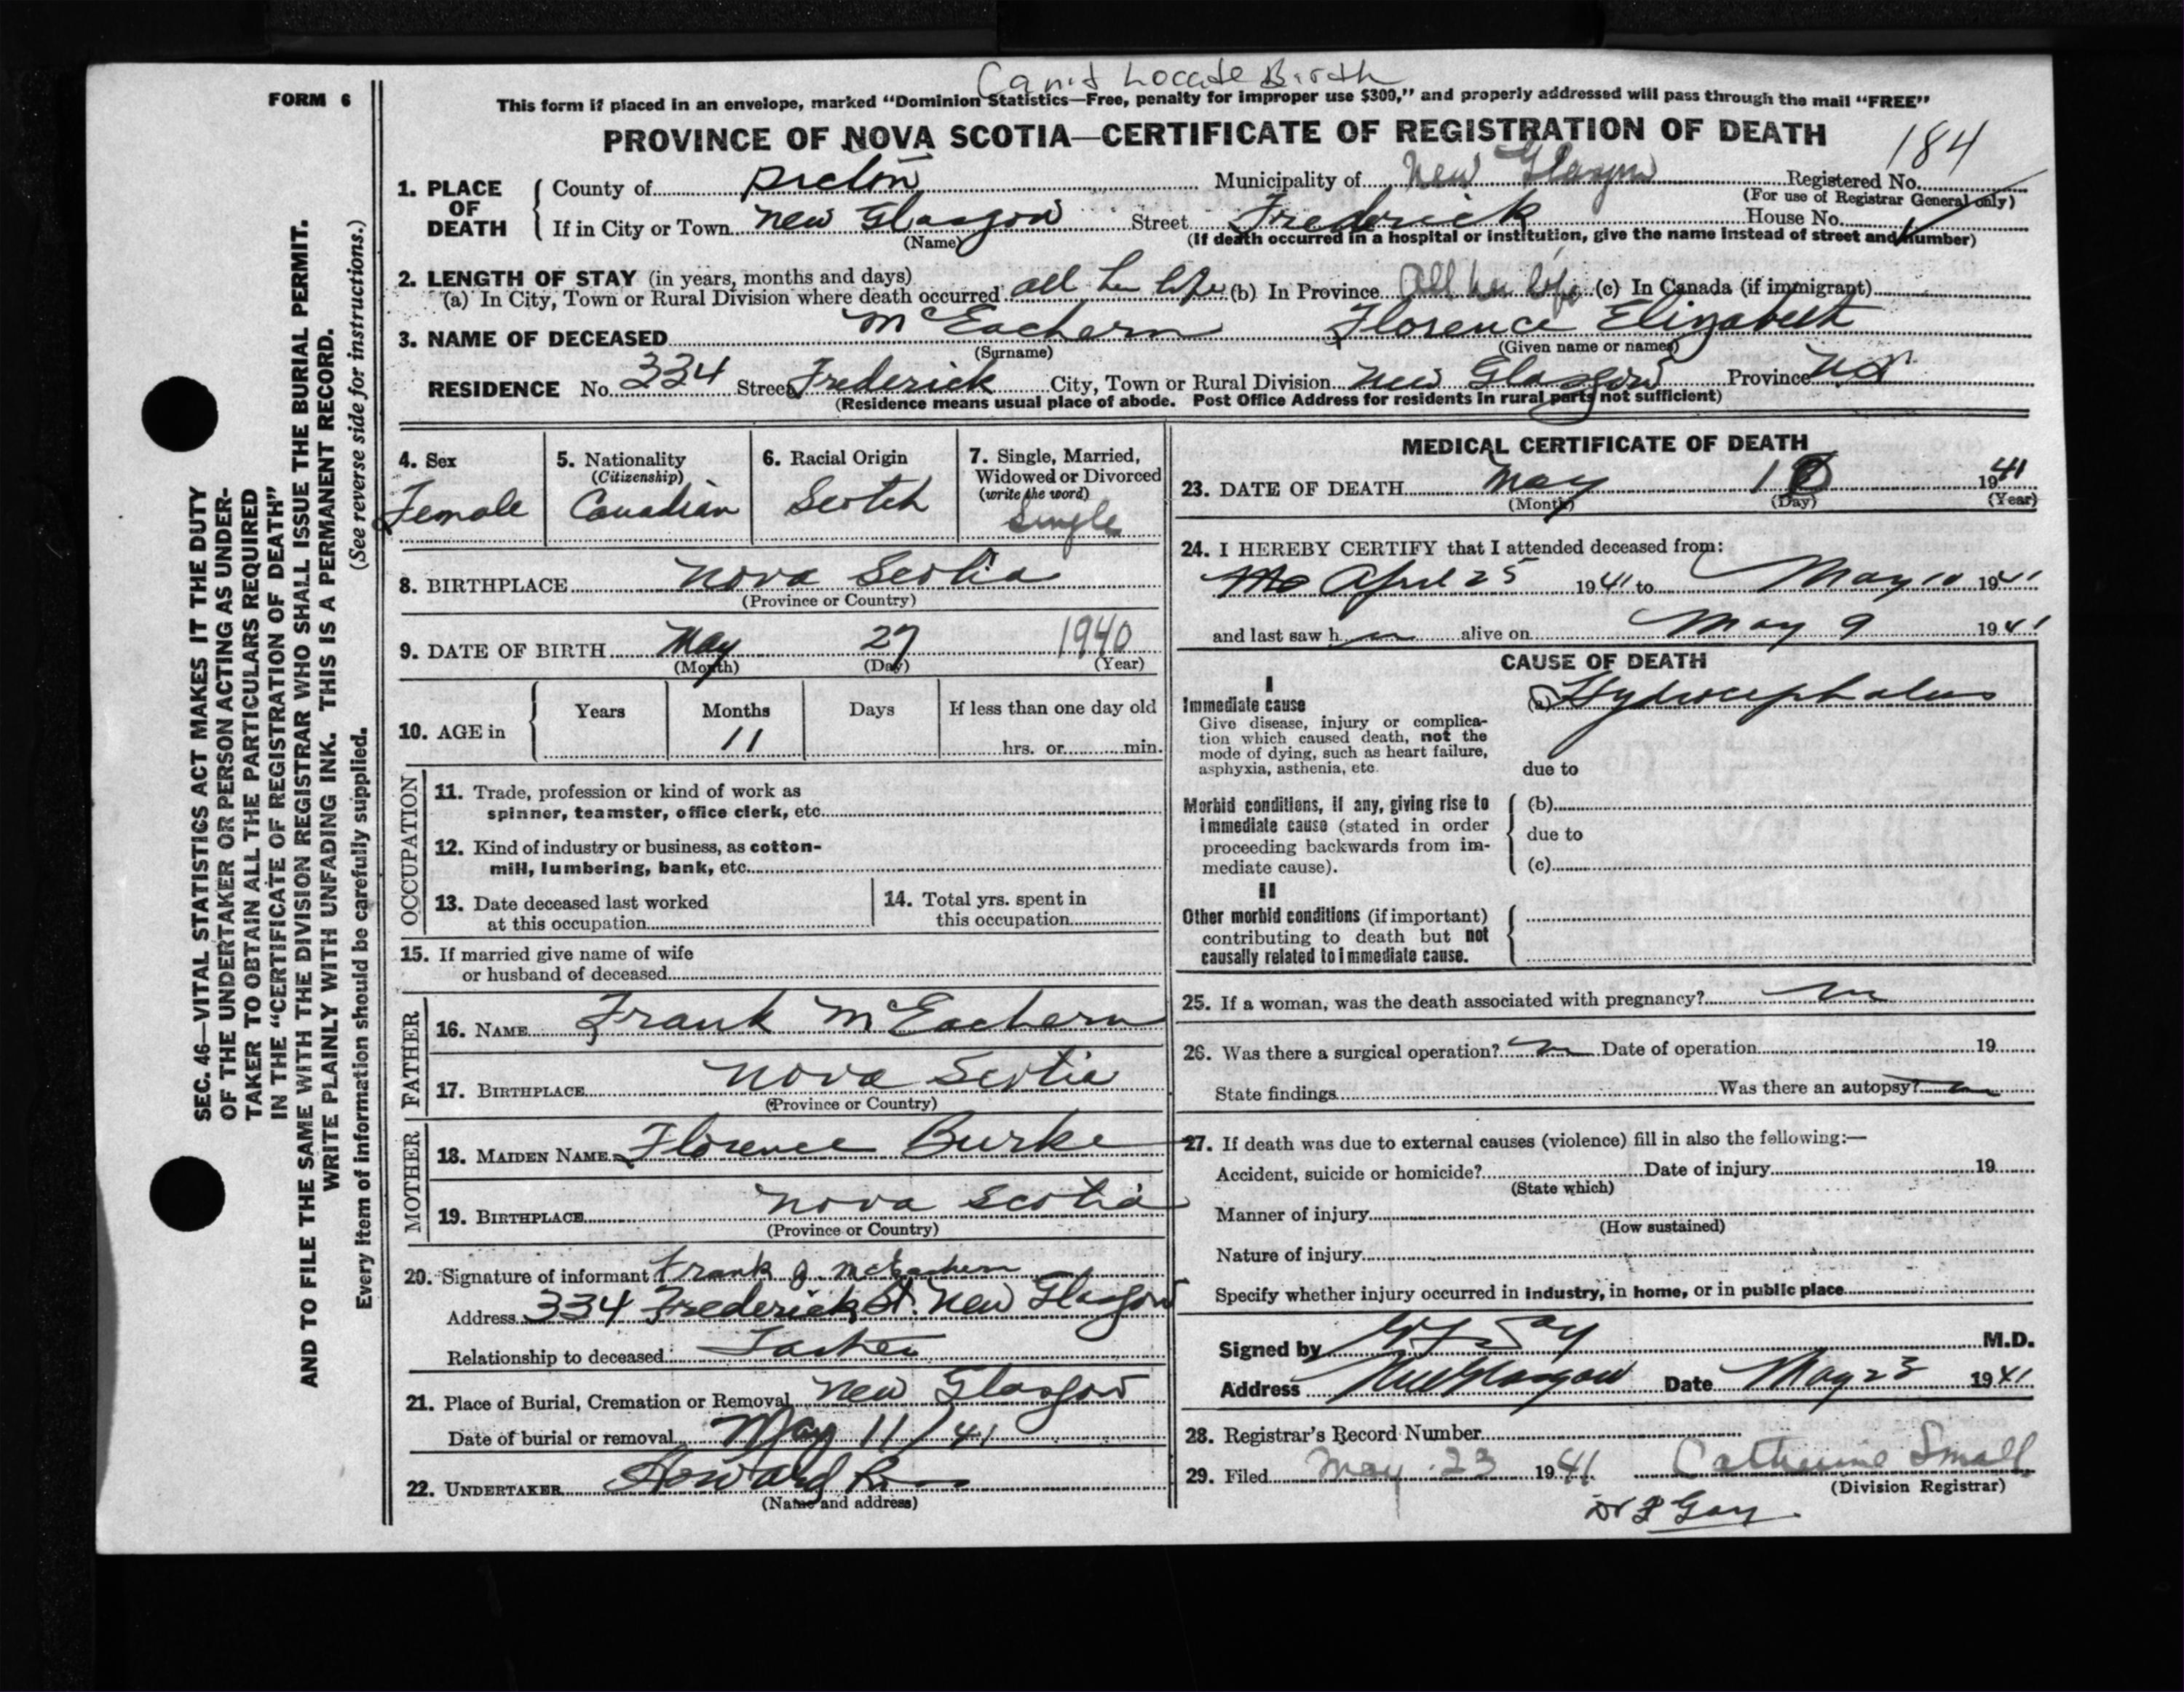 Can't Locate Birth
FORM 6
This form if placed in an envelope, marked "Dominion Statistics—Free, penalty for improper use $300," and properly addressed will pass through the mail "FREE"
PROVINCE OF NOVA SCOTIA—CERTIFICATE OF REGISTRATION OF DEATH
184
1. PLACE OF DEATH
County of Pictou Municipality of New Glasgow Registered No.
(For use of Registrar General only)
If in City or Town New Glasgow Street Frederick House No.
(Name) (If death occurred in a hospital or institution, give the name instead of street and number)
2. LENGTH OF STAY (in years, months and days)
(a) In City, Town or Rural Division where death occurred all her life (b) In Province All her life (c) In Canada (if immigrant)
3. NAME OF DECEASED McEachern Florence Elizabeth
(Surname) (Given name or names)
RESIDENCE No. 334 Street Frederick City, Town or Rural Division New Glasgow Province NS
(Residence means usual place of abode. Post Office Address for residents in rural parts not sufficient)
4. Sex
Female
5. Nationality
(Citizenship)
Canadian
6. Racial Origin
Scotch
7. Single, Married,
Widowed or Divorced
(write the word)
Single
8. BIRTHPLACE Nova Scotia
(Province or Country)
9. DATE OF BIRTH May 27 1940
(Month) (Day) (Year)
10. AGE in
Years Months Days If less than one day old
11 hrs. or min.
OCCUPATION
11. Trade, profession or kind of work as
spinner, teamster, office clerk, etc.
12. Kind of industry or business, as cotton-
mill, lumbering, bank, etc.
13. Date deceased last worked
at this occupation
14. Total yrs. spent in
this occupation
15. If married give name of wife
or husband of deceased
FATHER
16. NAME Frank McEachern
17. BIRTHPLACE Nova Scotia
(Province or Country)
MOTHER
18. MAIDEN NAME Florence Burke
19. BIRTHPLACE Nova Scotia
(Province or Country)
20. Signature of informant Frank J. McEachern
Address 334 Frederick St. New Glasgow
Relationship to deceased Father
21. Place of Burial, Cremation or Removal New Glasgow
Date of burial or removal May 11/41
22. UNDERTAKER Howard
(Name and address)
MEDICAL CERTIFICATE OF DEATH
23. DATE OF DEATH May 10 1941
(Month) (Day) (Year)
24. I HEREBY CERTIFY that I attended deceased from:
April 25 1941 to May 10 1941
and last saw h er alive on May 9 1941
CAUSE OF DEATH
I
Immediate cause
Give disease, injury or complica-
tion which caused death, not the
mode of dying, such as heart failure,
asphyxia, asthenia, etc.
(a) Hydrocephalus
due to
Morbid conditions, if any, giving rise to
immediate cause (stated in order
proceeding backwards from im-
mediate cause).
(b)
due to
(c)
II
Other morbid conditions (if important)
contributing to death but not
causally related to immediate cause.
25. If a woman, was the death associated with pregnancy? no
26. Was there a surgical operation? no Date of operation 19
State findings Was there an autopsy? no
27. If death was due to external causes (violence) fill in also the following:—
Accident, suicide or homicide? Date of injury 19
(State which)
Manner of injury
(How sustained)
Nature of injury
Specify whether injury occurred in industry, in home, or in public place
Signed by M.D.
Address New Glasgow Date May 23 1941
28. Registrar's Record Number
29. Filed May 23 1941 Catherine Small
(Division Registrar)
Gay
SEC. 46—VITAL STATISTICS ACT MAKES IT THE DUTY
OF THE UNDERTAKER OR PERSON ACTING AS UNDER-
TAKER TO OBTAIN ALL THE PARTICULARS REQUIRED
IN THE "CERTIFICATE OF REGISTRATION OF DEATH"
AND TO FILE THE SAME WITH THE DIVISION REGISTRAR WHO SHALL ISSUE THE BURIAL PERMIT.
WRITE PLAINLY WITH UNFADING INK. THIS IS A PERMANENT RECORD.
Every item of information should be carefully supplied. (See reverse side for instructions.)